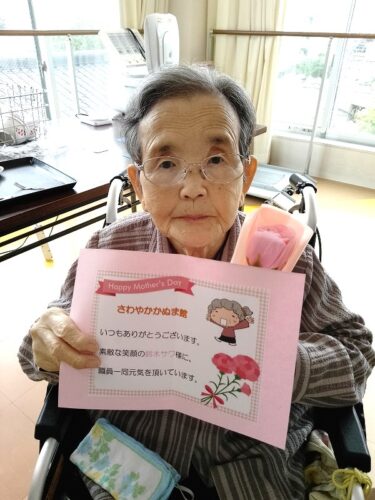 Happy Mother's Day
さわやかかぬま館
いつもありがとうございます。
素敵な笑顔の鈴木サワ様に、
職員一同元気を頂いています。